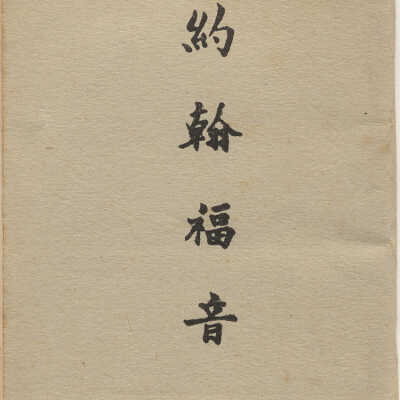 約翰福音